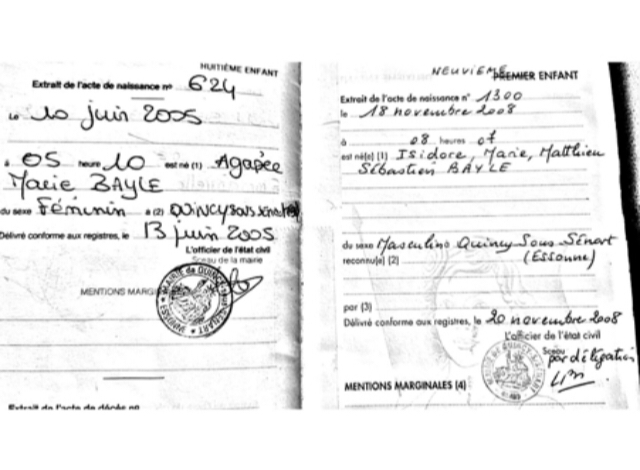 HUITIÈME ENFANT
Extrait de l'acte de naissance nº 624
Le 10 juin 2005
à 05 heure 10 est né (1) Agapée
Marie BAYLE
du sexe Féminin à (2) QUINCY SOUS SÉNART
Délivré conforme aux registres, le 13 juin 2005
L'officier de l'état civil
Sceau de la mairie
MENTIONS
Extrait de l'acte de décès nº
NEUVIÈME
PREMIER ENFANT
Extrait de l'acte de naissance nº 1300
le 18 novembre 2008
à 08 heures 07
est né(e) (1) Isidore, Marie, Matthieu
Sébastien BAYLE
du sexe Masculin à Quincy Sous Sénart
reconnu(e) (2) (Essonne)
par (3)
Délivré conforme aux registres, le 20 novembre 2008
L'officier de l'état civil
Sceau
par délégation
MENTIONS MARGINALES (4)